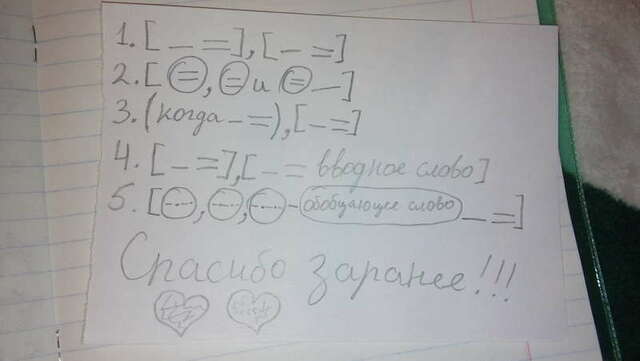 1. [ _ = ], [ _ = ]
2. [ =, = и = _ ]
3. (когда _ = ), [ _ = ]
4. [ _ = ], [ _ = вводное слово]
5. [ ---, ---, --- - обобщающее слово _ = ]
Спасибо заранее!!!